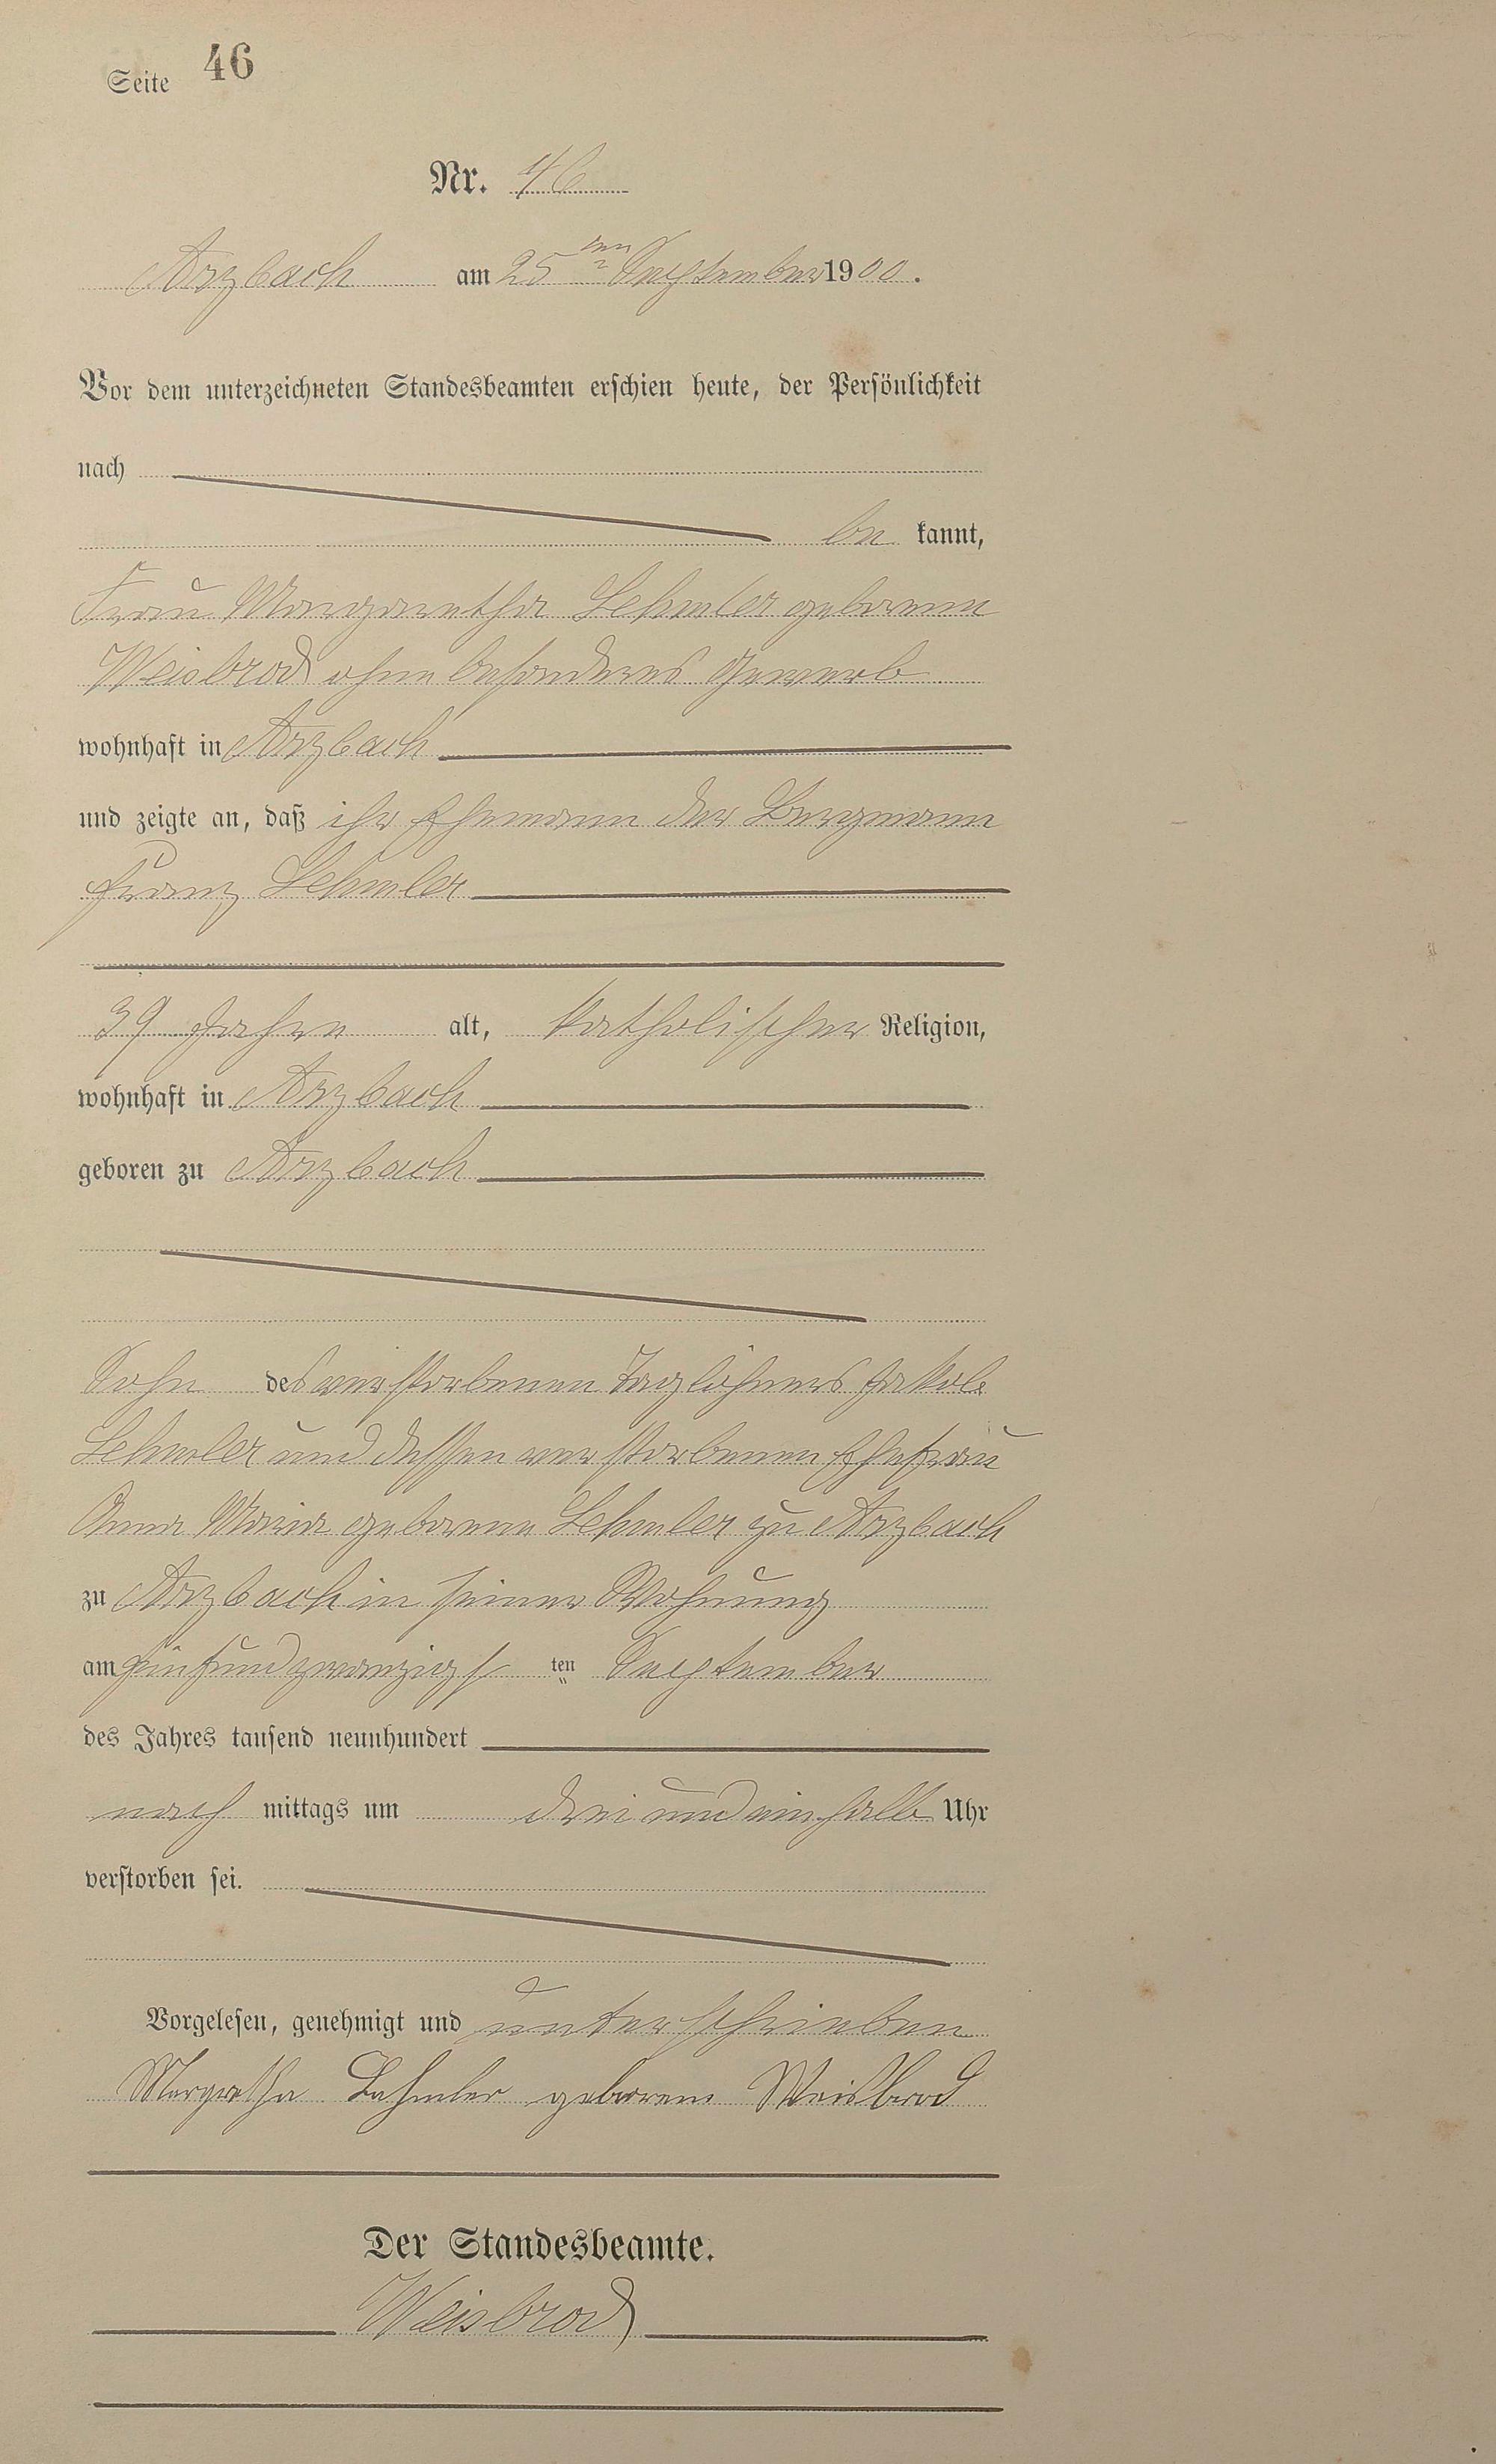 Seite 46
Nr. 46
Arzbach am 25ten September 1900.
Vor dem unterzeichneten Standesbeamten erschien heute, der Persönlichkeit
nach
be kannt,
Frau Margaretha Lehmler geborene
Weisbrod ohne besonderes Gewerb
wohnhaft in Arzbach
und zeigte an, daß ihr Ehemann der Bergmann
Franz Lehmler
39 Jahre alt, katholischer Religion,
wohnhaft in Arzbach
geboren zu Arzbach
Sohn des verstorbenen Taglöhners Jakob
Lehmler und dessen verstorbenen Ehefrau
Anna Maria geborene Lehmler zu Arzbach
zu Arzbach in seiner Wohnung
am fünfundzwanzigsten September
des Jahres tausend neunhundert
nach mittags um drei und einhalb Uhr
verstorben sei.
Vorgelesen, genehmigt und unterschrieben
Margretha Lehmler geborene Weisbrod
Der Standesbeamte.
Weisbrod